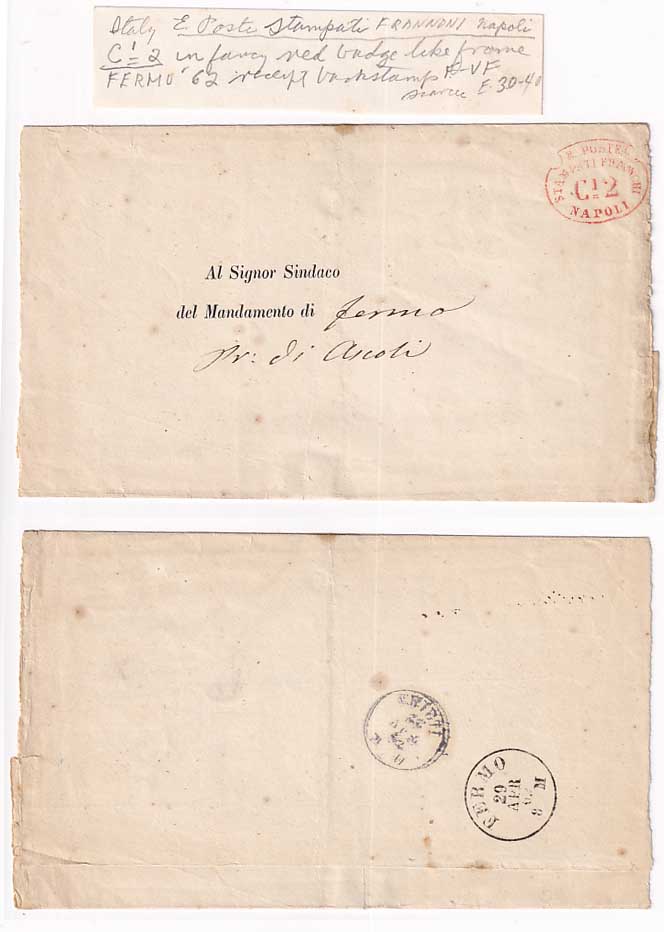 Italy E Poste Stampati FRANNONI Napoli
C.1 = 2 in fancy red badge like frame
FERMO '62 receipt backstamps F-VF
scarce E. 30-40
R. POSTE
STAMPATI FRANCHI
C.1 = 2
NAPOLI
Al Signor Sindaco
del Mandamento di fermo
Pr: di Ascoli
FERMO
29
APR
62
8 M